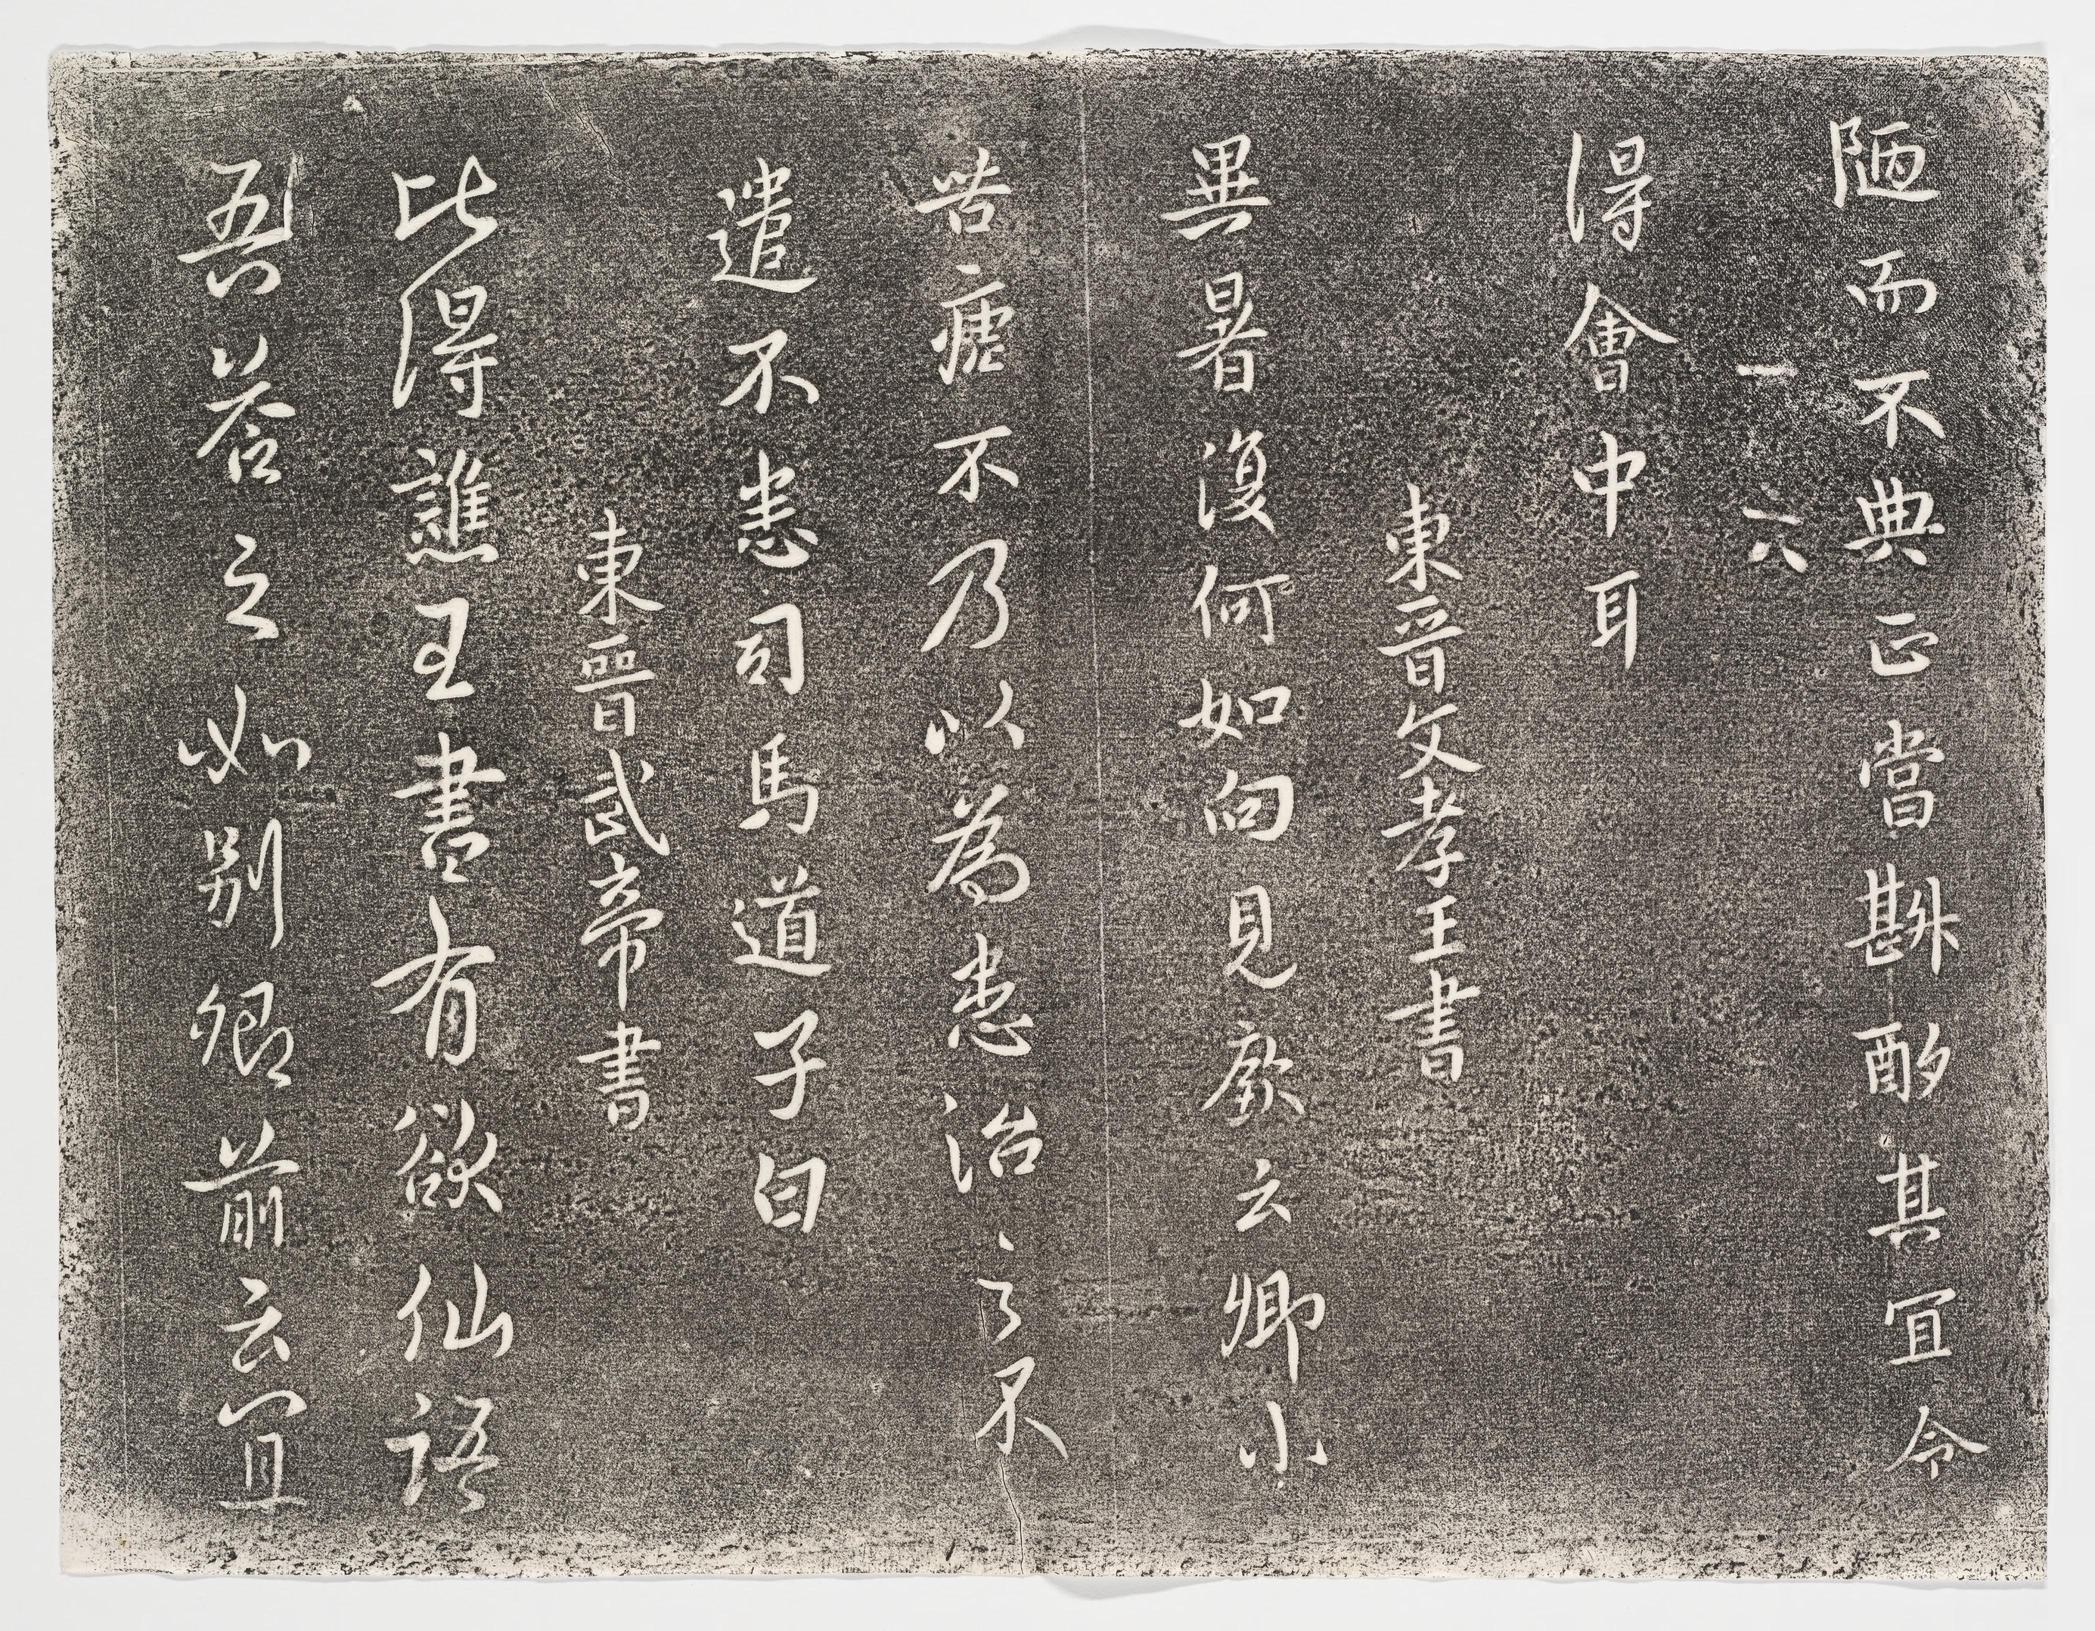 陋而不典正當斟酌其宜令
一六
得會中耳
東晉文孝王書
異暑復何如向見廞云卿小
苦瘧不乃以為患治之不
遣不悉司馬道子白
東晉武帝書
比得譙王書有欲仙語
吾答之如別卿前云宜